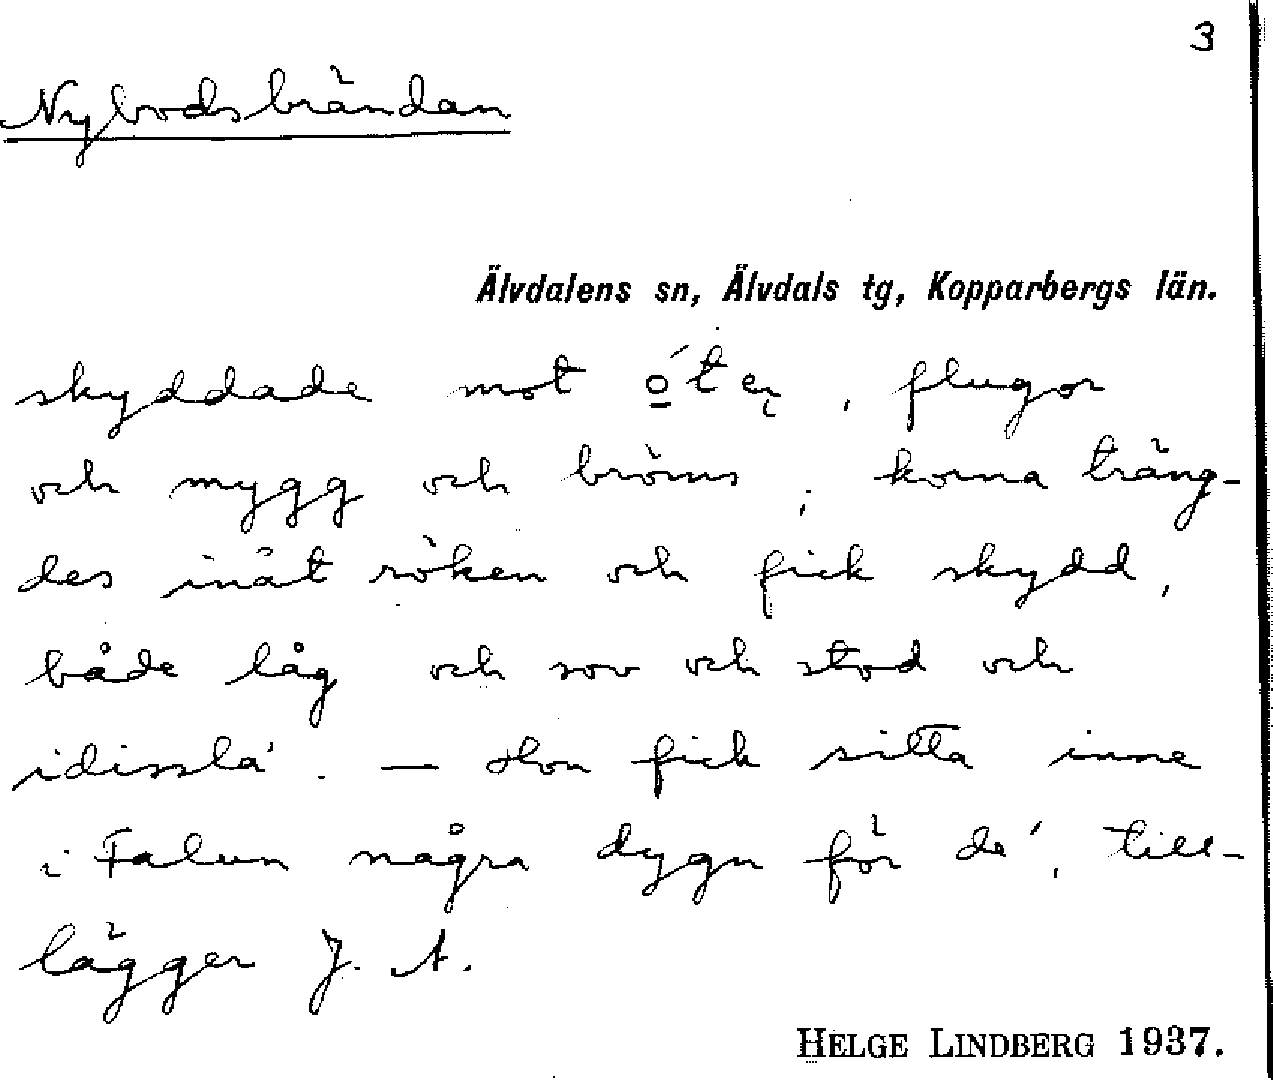 3
Nybodsbrändan
Älvdalens sn, Älvdals tg, Kopparbergs län.
skyddade mot , flugor
och mygg och bröms ; korna träng-
des inåt röken och fick skydd,
både låg och sov och stod och
idissla'. — Hon fick sitta inne
i Falun några dygn för de', till-
lägger J. A.
HELGE LINDBERG 1937.